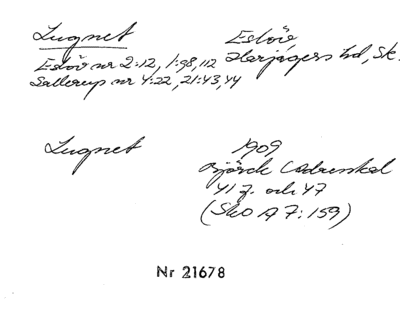 Lugnet Eslöv
Eslöv nr 2:12, 1:98, 112 Harjagers hd, Sk.
Sallerup nr 4:22, 21:43, 44
Lugnet 1909
Björck
41 f. och 47
(Sko A 7:159)
Nr 21678